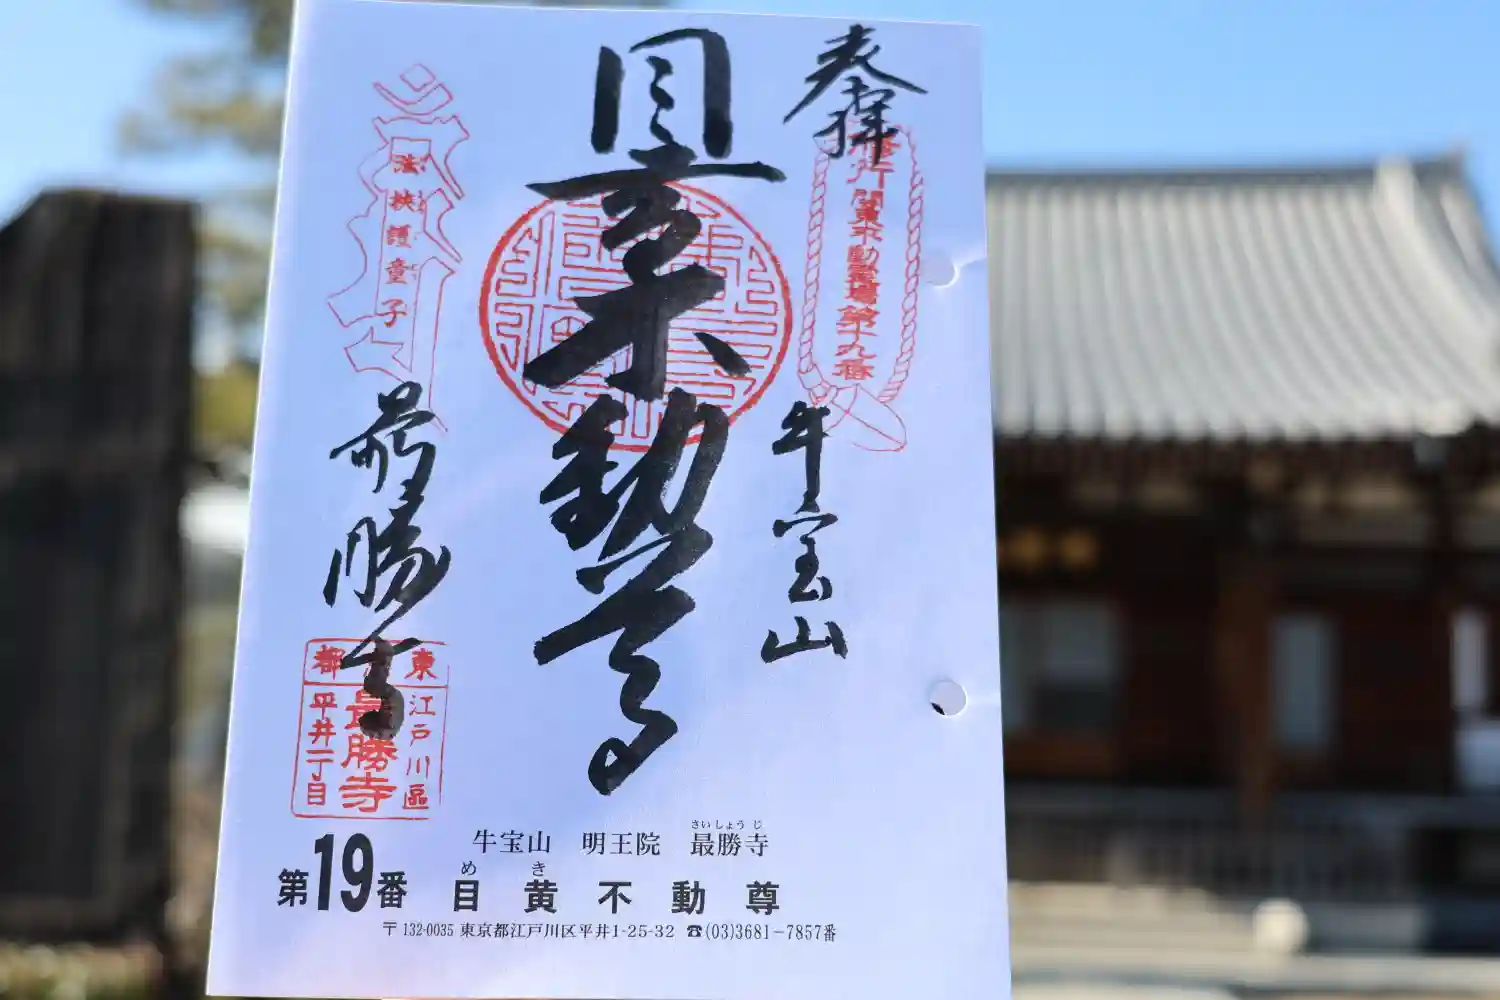 奉拝
修行関東不動霊場第十九番
牛宝山
目黄不動尊
法挾護童子
最勝寺
東都
江戸川區
最勝寺
平井一丁目
牛宝山 明王院 最勝寺
さいしょうじ
第19番 目黄不動尊
めき
〒132-0035 東京都江戸川区平井1-25-32 ☎(03)3681-7857番